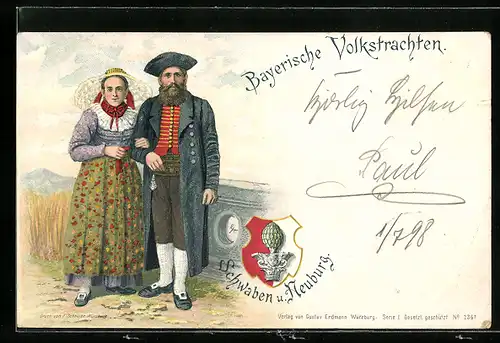 Bayerische Volkstrachten.
Paul
1/7 98
Schwaben u. Neuburg.
Verlag von Gustav Erdmann Würzburg. Serie I Gesetzl. geschützt Nº